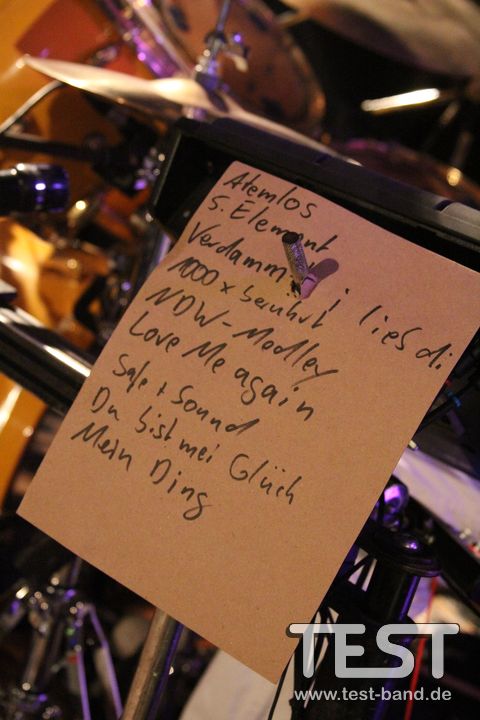 Atemlos
5. Element
Verdamm i lieb di
1000 x berührt
NDW-Medley
Love Me again
Safe + Sound
Du bist mei Glück
Mein Ding
TEST
www.test-band.de